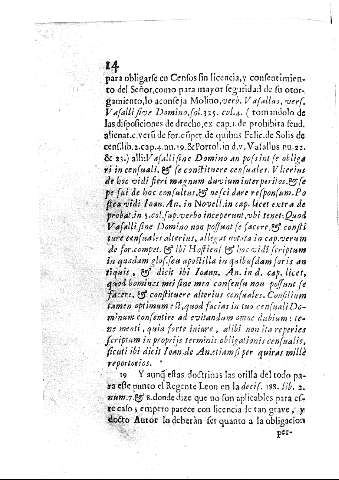 14
para obligarse co Censos sin licencia, y consentimien-
to del Señor, como para mayor seguridad de su otor-
gamiento, lo aconseja Molino, verb. Vasallus, vers.
Vasalli sine Domino, fol. 325. col. 4. (tomandolo de
las disposiciones de derecho, ex cap. 1. de prohibita feud.
alienat. & versu de for. cõpet. de quibus Felic. de Solis de
censib. lib. 2. cap. 4. nu. 19. & Portol. in d. v. Vasallus nu. 22.
& 23.) alli: Vasalli sine Domino an possint se obliga
ri in censuali, & se constituere censuales. Vlterius
de hoc vidi fieri magnum duvium inter peritos, & se
pe fui de hoc consultus, nesci dare responsum. Po
stea vidi Ioan. An. in Novell. in cap. licet extra de
probat. in 3. col. sup. verbo inceperunt, vbi tenet: Quod
Vasalli sine Domino non possunt se facere, & consti
tuere censuales alterius, allegat notata in cap. verum
de for. compet. & ibi Hostiens. & hoc vidi scriptum
in quadam glos. seu apostilla in quibusdam foris an
tiquis, & dicit ibi Ioann. An. in d. cap. licet,
quod homines mei sine meo consensu non possunt se
facere, & constituere alterius censuales. Consilium
tamen optimum est, quod facias in tuo censuali Do-
minum consentire ad evitandum omne dubium: te-
ne menti, quia forte in iure, alibi non ita reperies
scriptum in proprijs terminis obligationis censualis,
sicuti ibi dicit Ioan. de An. etiam si per quiras mille
reportorios.
19 Y aunq̃ estas doctrinas las orilla del todo pa
ra este punto el Regente Leon en la decis. 188. lib. 2.
num. 7. & 8. donde dize que no son aplicables para es-
te caso; empero parece con licencia de tan grave, y
docto Autor la deverán ser quanto a la obligacion
per-